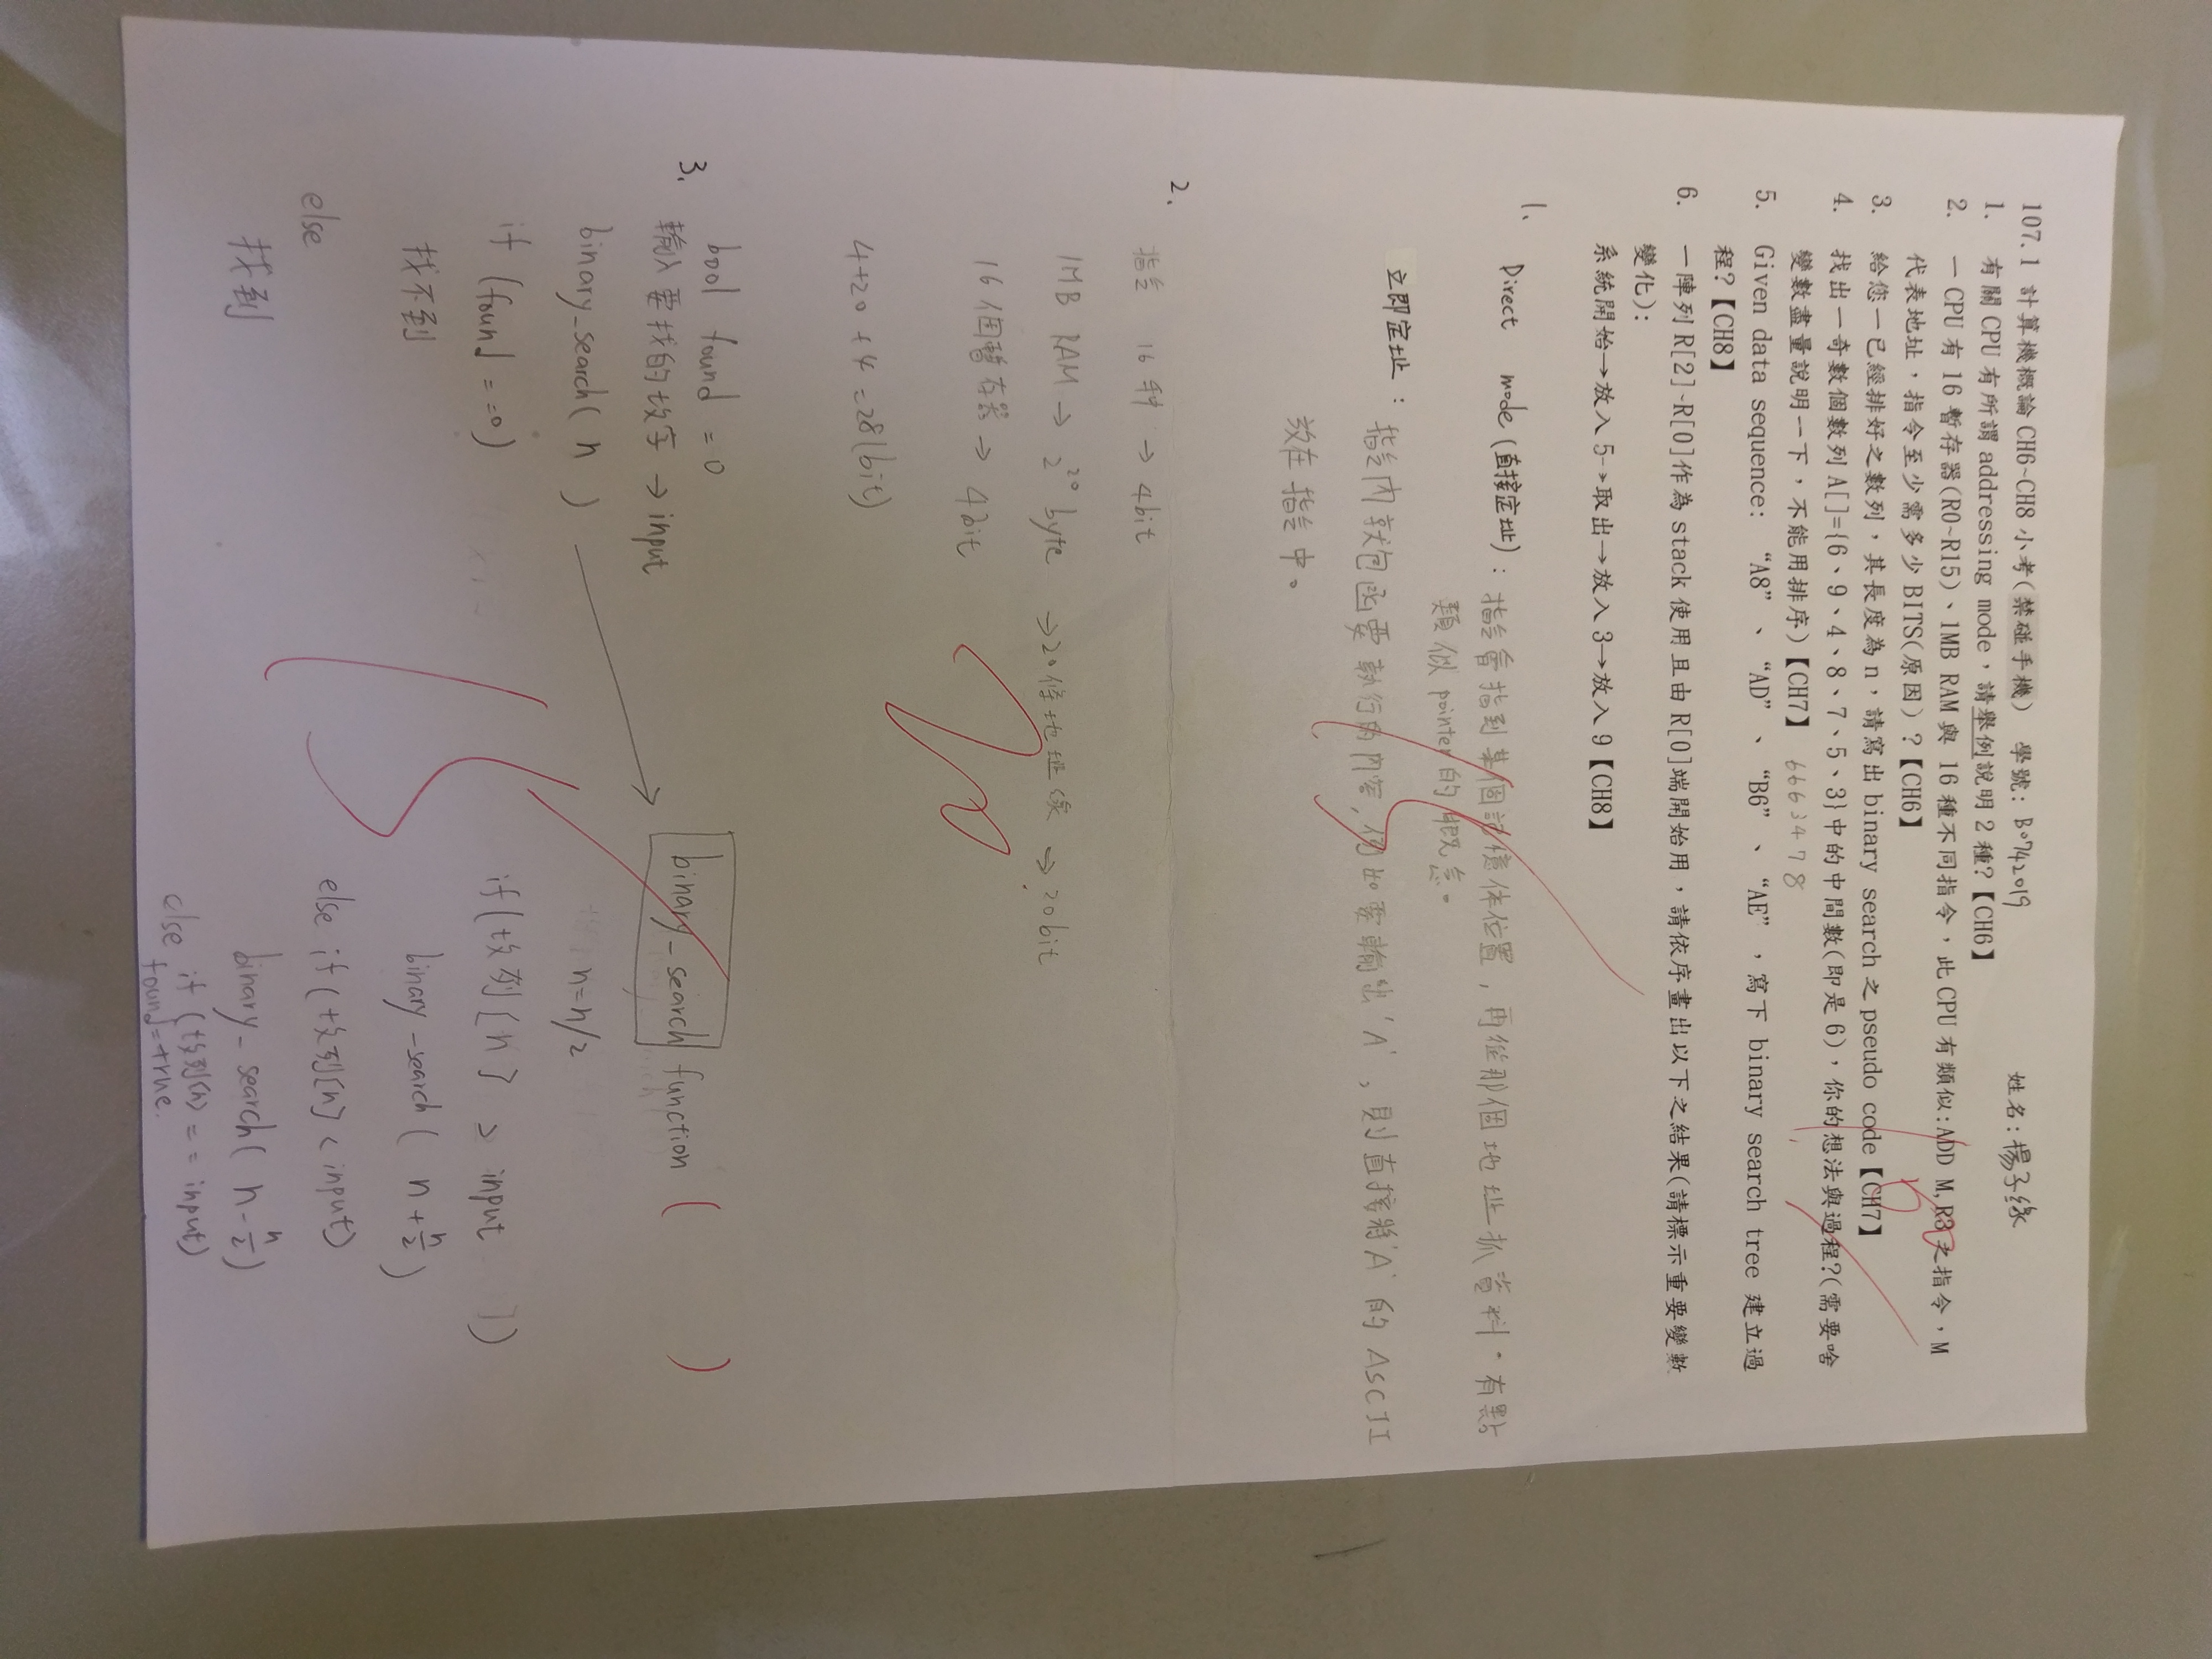 107.1 計算機概論 CH6~CH8 小考(禁碰手機) 學號: B0742019 姓名:楊子緣
1. 有關 CPU 有所謂 addressing mode,請舉例說明 2 種?【CH6】
2. 一 CPU 有 16 暫存器(R0~R15)、1MB RAM 與 16 種不同指令,此 CPU 有類似:ADD M,R3 之指令,M
代表地址,指令至少需多少 BITS(原因)?【CH6】
3. 給您一已經排好之數列,其長度為 n,請寫出 binary search 之 pseudo code【CH7】
4. 找出一奇數個數列 A[]={6、9、4、8、7、5、3}中的中間數(即是 6),你的想法與過程?(需要啥
變數盡量說明一下,不能用排序)【CH7】 6663478
5. Given data sequence: “A8”、“AD”、“B6”、“AE”,寫下 binary search tree 建立過
程?【CH8】
6. 一陣列 R[2]~R[0]作為 stack 使用且由 R[0]端開始用,請依序畫出以下之結果(請標示重要變數
變化):
系統開始→放入 5→取出→放入 3→放入 9【CH8】
1. Direct mode (直接定址) : 指令會指到某個記憶体位置, 再從那個地址抓資料。有點
類似 pointer 的概念。
立即定址 : 指令內就包函要執行的內容, 例如要輸出 'A' , 則直接將 'A' 的 ASCII
放在指令中。
15
2.
指令 16 种 → 4bit
1MB RAM → 2^20 byte → 20條地址線 → 20bit
16個暫存器 → 4bit
20
4+20+4=28(bit)
3. bool found = 0
輸入要找的数字 → input
binary_search( n )
if (found ==0)
找不到
else
找到
15
binary_search function ( )
n=n/2
if(数列[n] > input )
binary_search( n+n/2 )
else if(数列[n] < input)
binary_search( n-n/2 )
else if (数列(n) == input)
found=true.